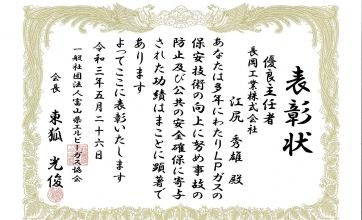 表彰状
優良主任者
長岡工業株式会社
江尻 秀雄 殿
あなたは多年にわたりLPガスの
保安技術の向上に努め事故の
防止及び公共の安全確保に寄与
された功績はまことに顕著で
あります
よってここに表彰いたします
令和三年五月二十六日
一般社団法人富山県エルピーガス協会
会長 東狐 光俊